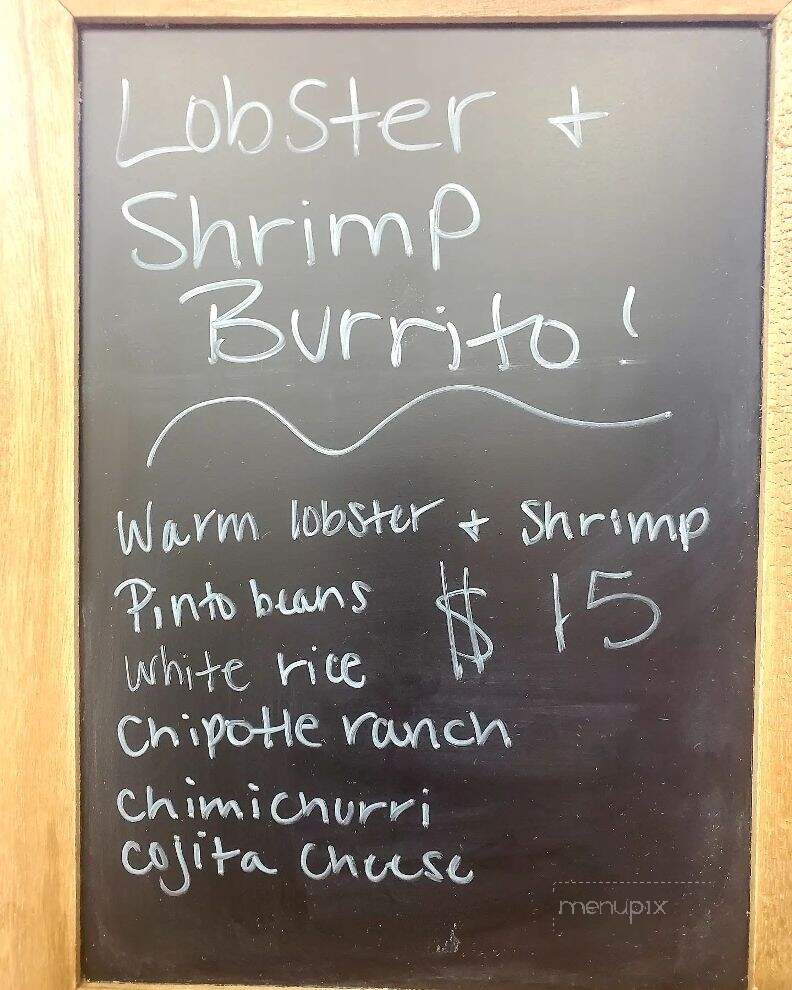 Lobster +
Shrimp
Burrito!
Warm lobster + Shrimp
Pinto beans $15
White rice
Chipotle ranch
chimichurri
cojita cheese
menupix